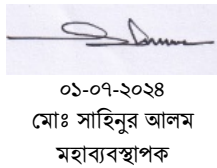 ০১-০৭-২০২৪
মোঃ সাহিনুর আলম
মহাব্যবস্থাপক